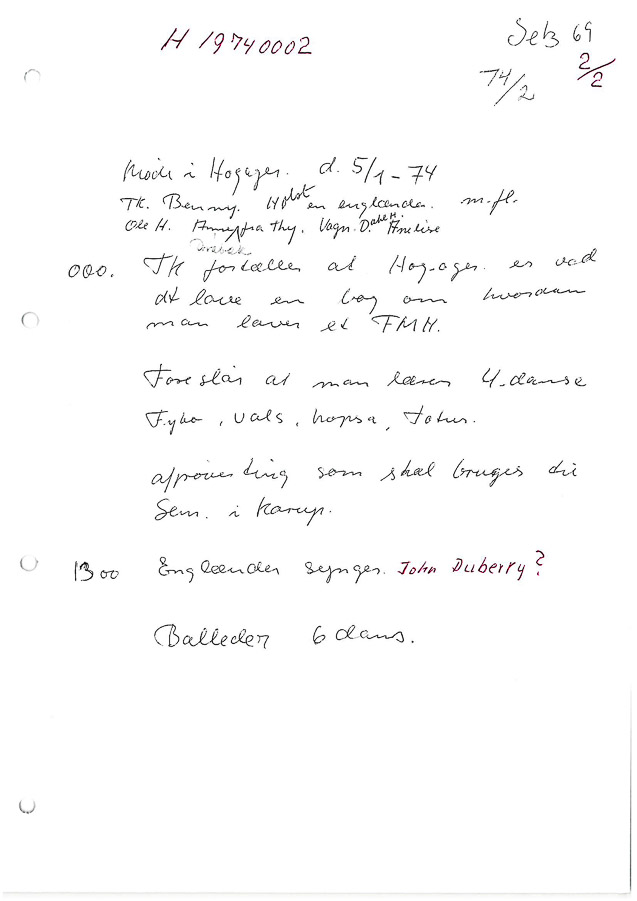 H 19740002
Seb 69
2/2
74/2
Møde i Hogager. d. 5/1-74
TK. Benny. Holst en englænder. m.fl.
Ole H. Vagn. D. Dahl H. Anelise
000. TK fortæller at Hogager. er ved
dt lave en bog om hvordan
man laver et FMH.
Foreslår at man lærer 4. danse
Fyho, vals, hopsa, Totur.
afprøvening som skal bruges til
Sem. i Karup.
1300 Englænder synger. John Duberry?
Balleder 6 dans.